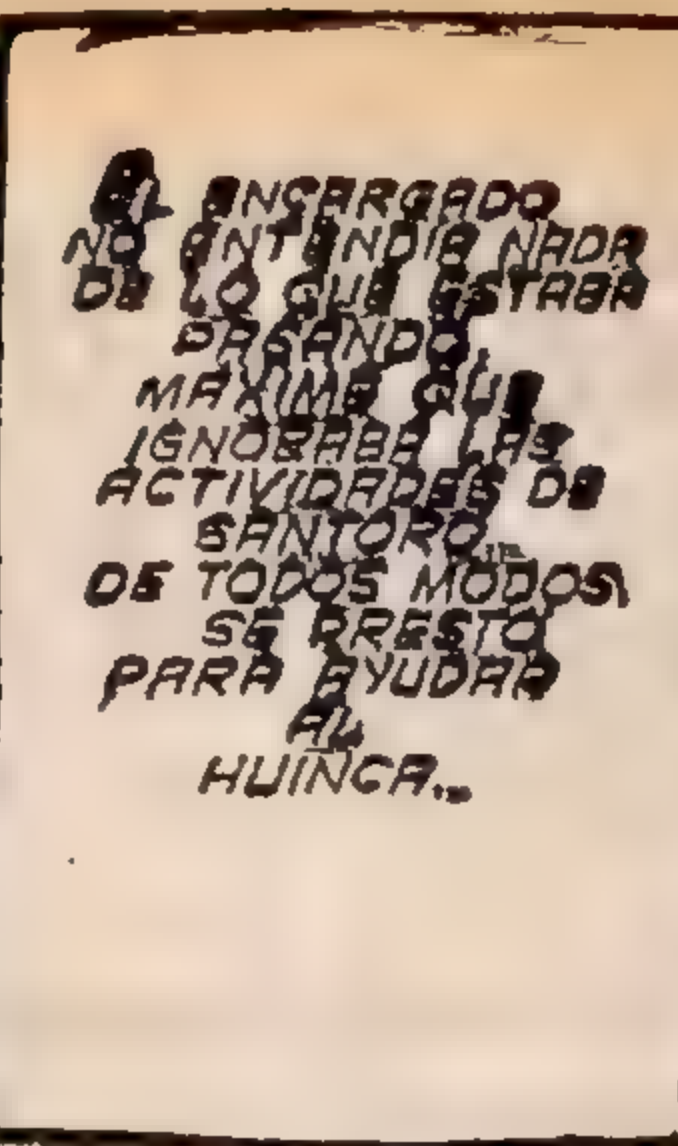 EL ENCARGADO
NO ENTENDIA NADA
DE LO QUE ESTABA
PASANDO,
MAXIME QUE
IGNORABA LAS
ACTIVIDADES DE
SANTORO...
DE TODOS MODOS,
SE PRESTO
PARA AYUDAR
AL
HUINCA...